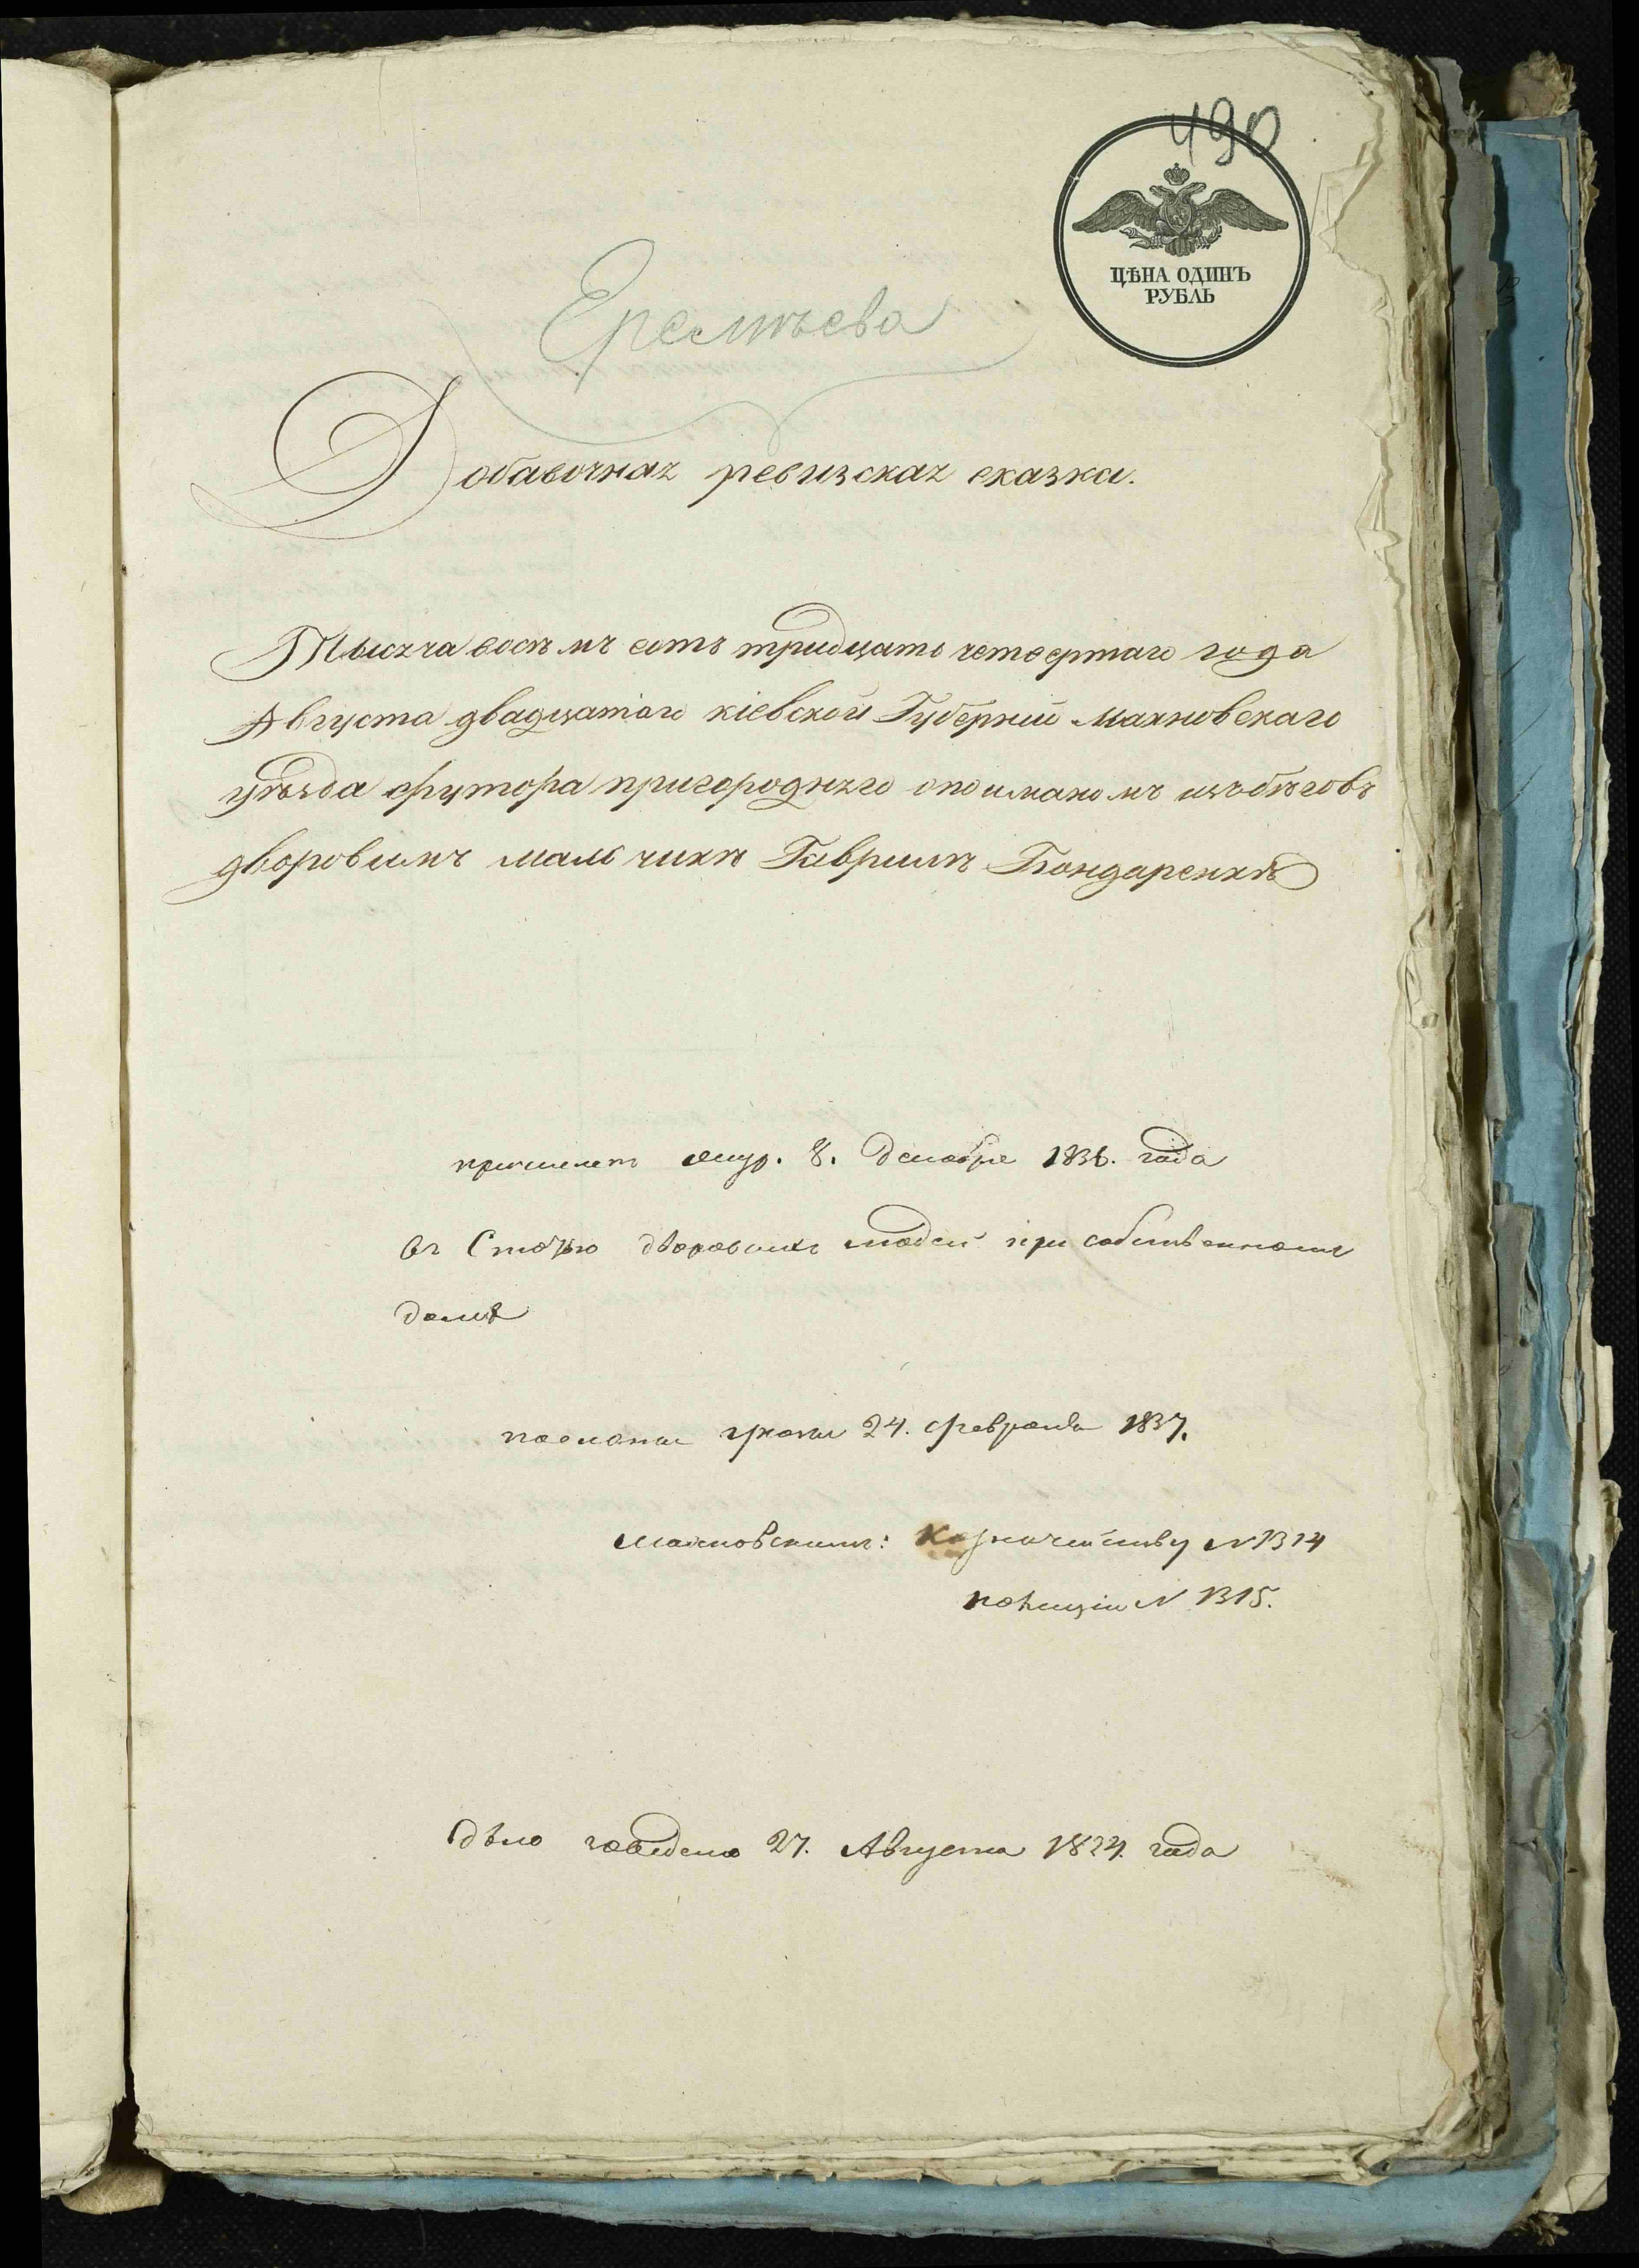 490
ЦѢНА ОДИНЪ
РУБЛЬ
Еремѣева
Добавочная ревизская сказка.
Тысяча восѣмъ сотъ тридцато четвертаго года
Августа двадцатаго кіевской Губерніи Махновскаго
уѣзда футора пригороднего опоиманомъ изъ бѣговъ
дворовимъ мальчикѣ Гаврилѣ Бондаренкѣ
8. Декабре 1836. года
въ Статью дворовыхъ людей при собственномъ
домѣ
посланы указы 24. февраля 1837.
Махновскимъ: Казначейству N 1314
полиціи N 1315.
дѣло заведено 27. Августа 1834. года